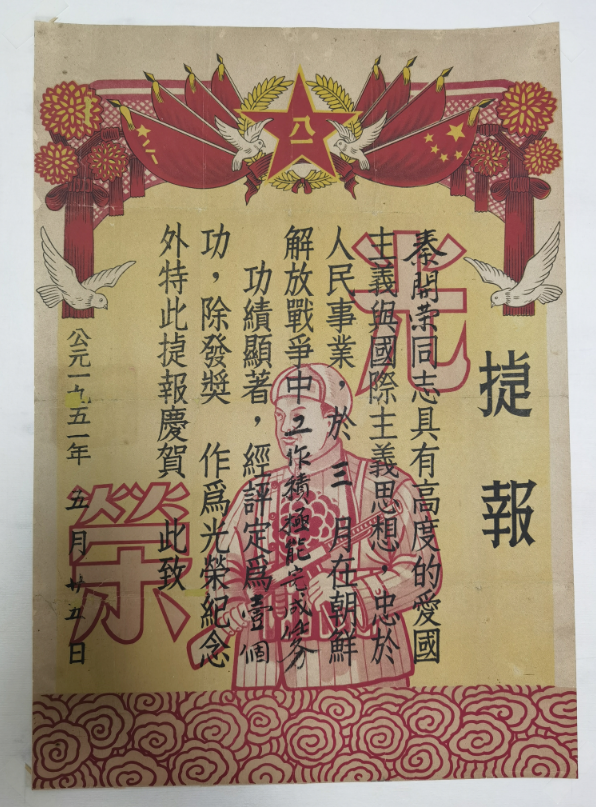 八一
光榮
捷報
秦開榮同志具有高度的愛國
主義與國際主義思想，忠於
人民事業，於三月在朝鮮
解放戰爭中工作積極能完成任務
功績顯著，經評定為壹個
功，除發獎 作為光榮紀念
外特此捷報慶賀 此致
公元一九五一年五月廿五日